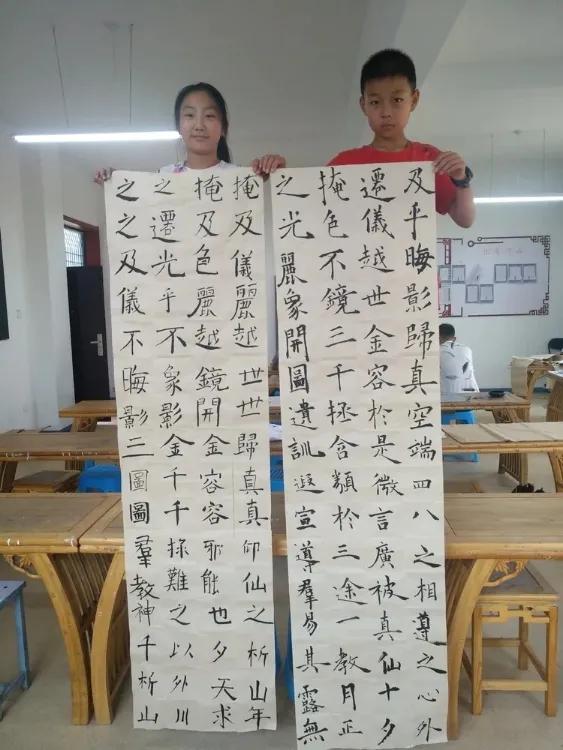 及乎晦影歸真空端四八之相尊之心外
遷儀越世金容於是微言廣被真仙十夕
掩色不鏡三千拯含類於三途一教月正
之光麗象開圖遺訓遐宣導羣易其露無
掩及儀麗越世世歸真真仰仙之析山年
掩及色麗越鏡開金容容邪能也夕天求
之遷光乎不象影金千千難之以外川
之之及儀不晦影二圖圖羣教神千析山